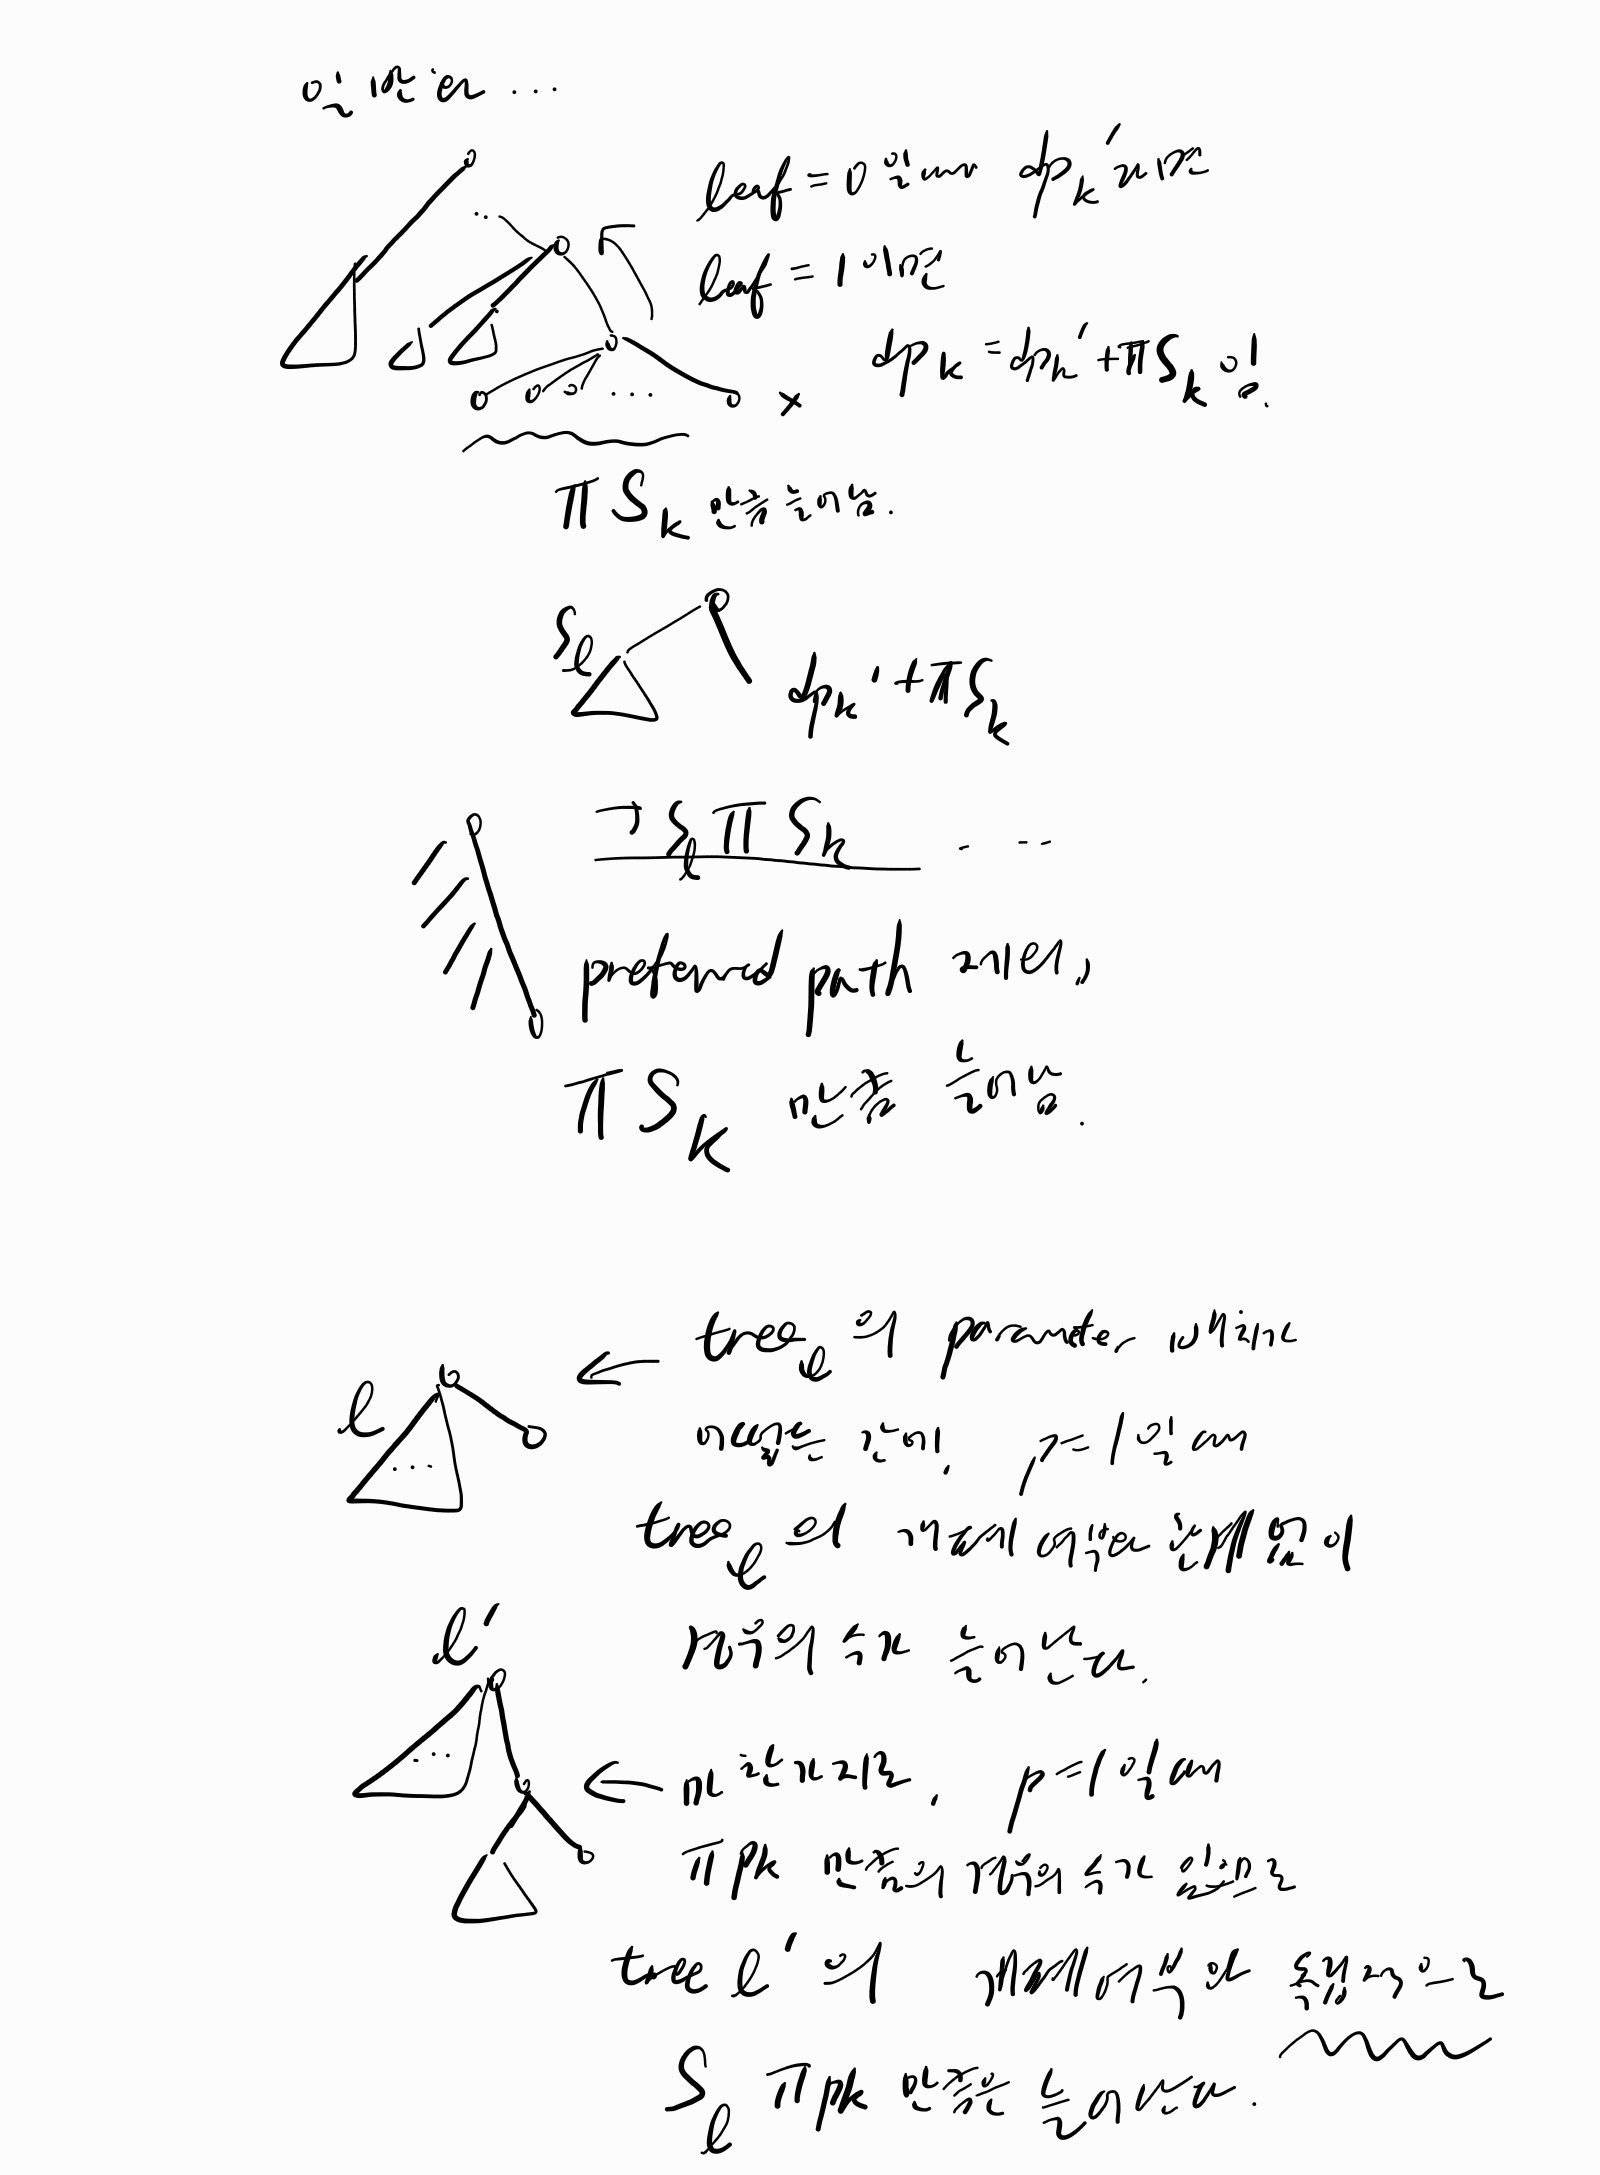 일반화 ...
leaf = 0 일때 dp_k' 라면
leaf = 1 이면
dp_k = dp_k' + π S_k 임.
x
π S_k 만큼 늘어남.
S_l
dp_k' + π S_k
→ S_l π S_k ...
preferred path 제외,
π S_k 만큼 늘어남.
l ← tree_l 의 parameter
어떻든 간에, p=1 일 때
tree_l 의 개폐 여부와 관계없이
경우의 수가 늘어난다.
l'
← 마찬가지로, p=1 일 때
π pk 만큼의 경우의 수가 있으므로
tree l' 의 개폐여부와 독립적으로
S_l π pk 만큼은 늘어난다.